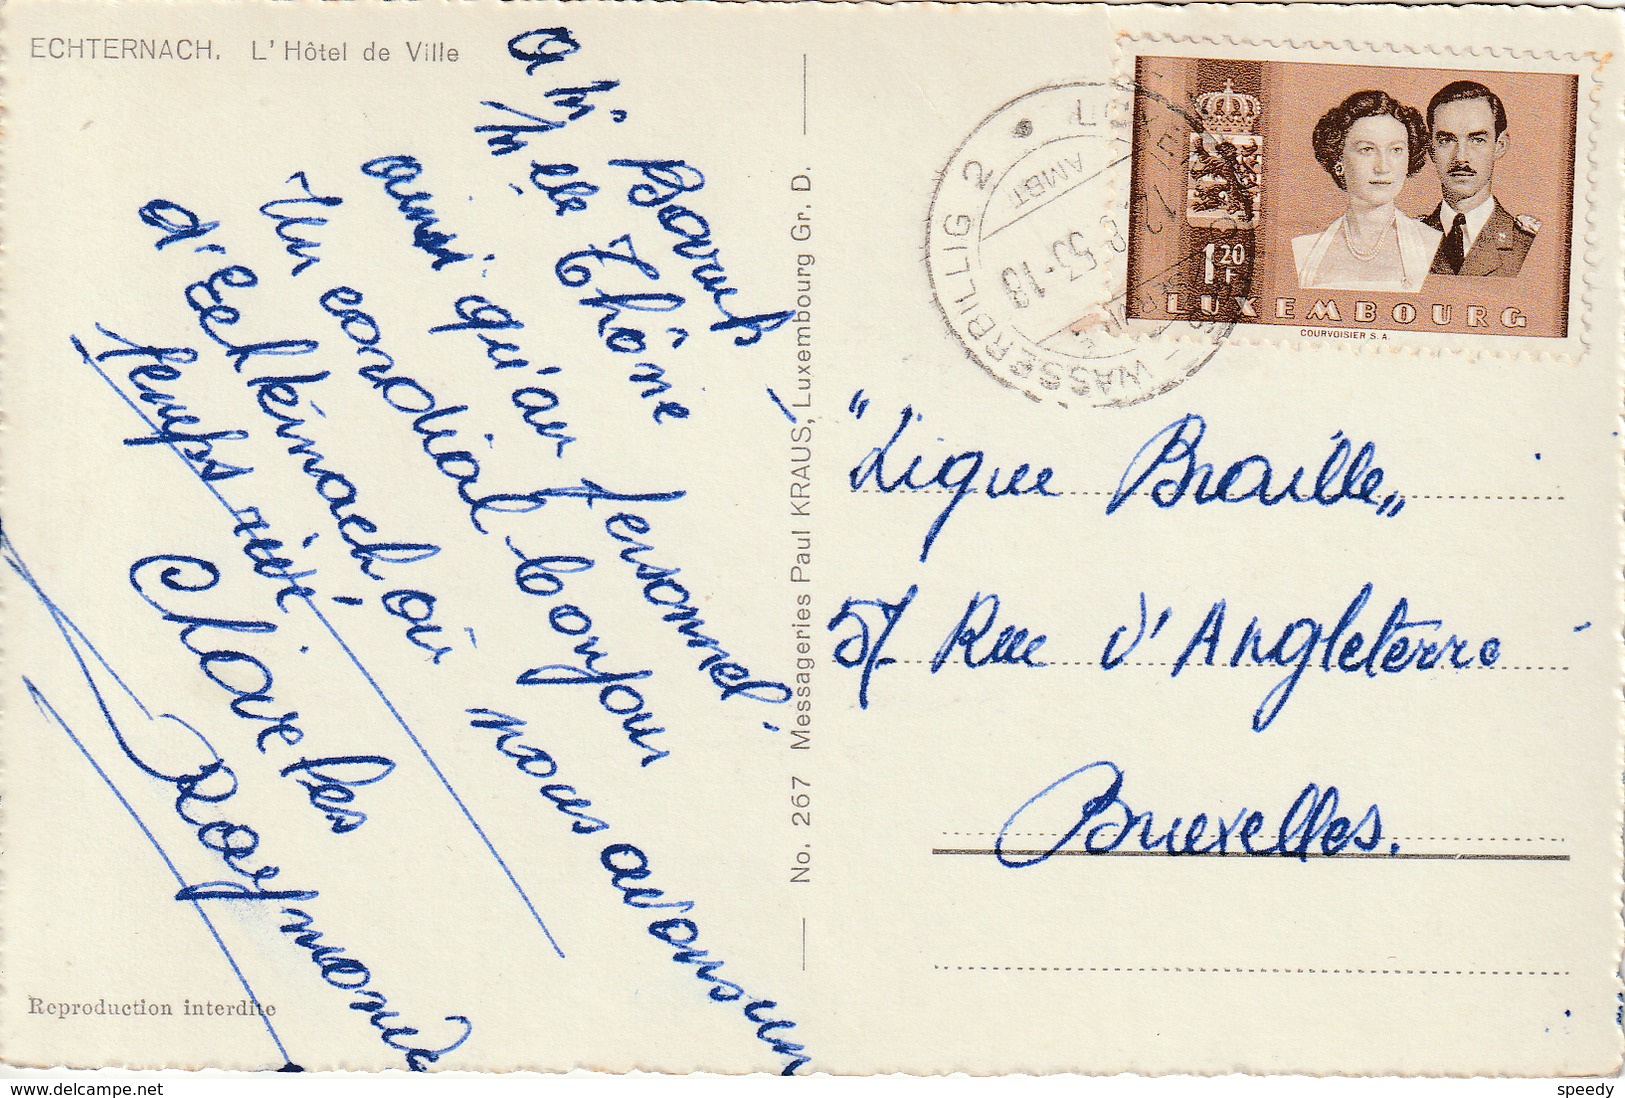 ECHTERNACH. L'Hôtel de Ville
a Mr
Melle Thône
ainsi qu'au personnel.
Un cordial bonjour
d'Echternach où nous avons un
temps
Charles
Raymonde
Reproduction interdite
No. 267 Messageries Paul KRAUS, Luxembourg Gr. D.
WASSERBILLIG 2
AMBT
53-18
1 20
F
LUXEMBOURG
COURVOISIER S. A.
"Ligue Braille"
57 Rue d'Angleterre
Bruxelles.
www.delcampe.net
speedy